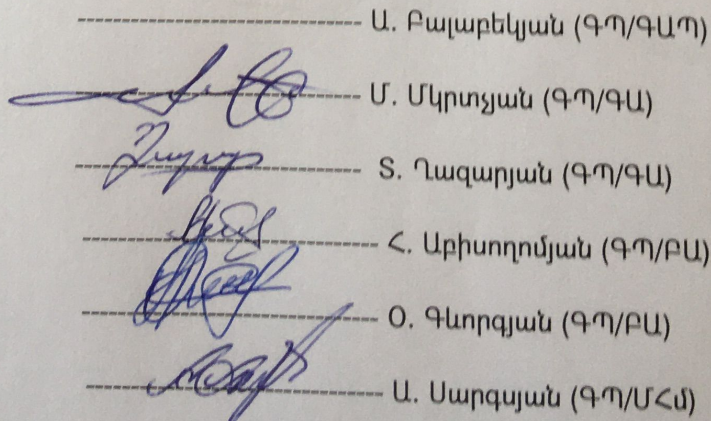 Ա. Բալաբեկյան (ԳՊ/ԳԱՊ)
Մ. Մկրտչյան (ԳՊ/ԳԱ)
Տ. Ղազարյան (ԳՊ/ԳԱ)
Հ. Աբիսողոմյան (ԳՊ/ԲԱ)
Օ. Գևորգյան (ԳՊ/ԲԱ)
Ա. Սարգսյան (ԳՊ/ՄՀմ)